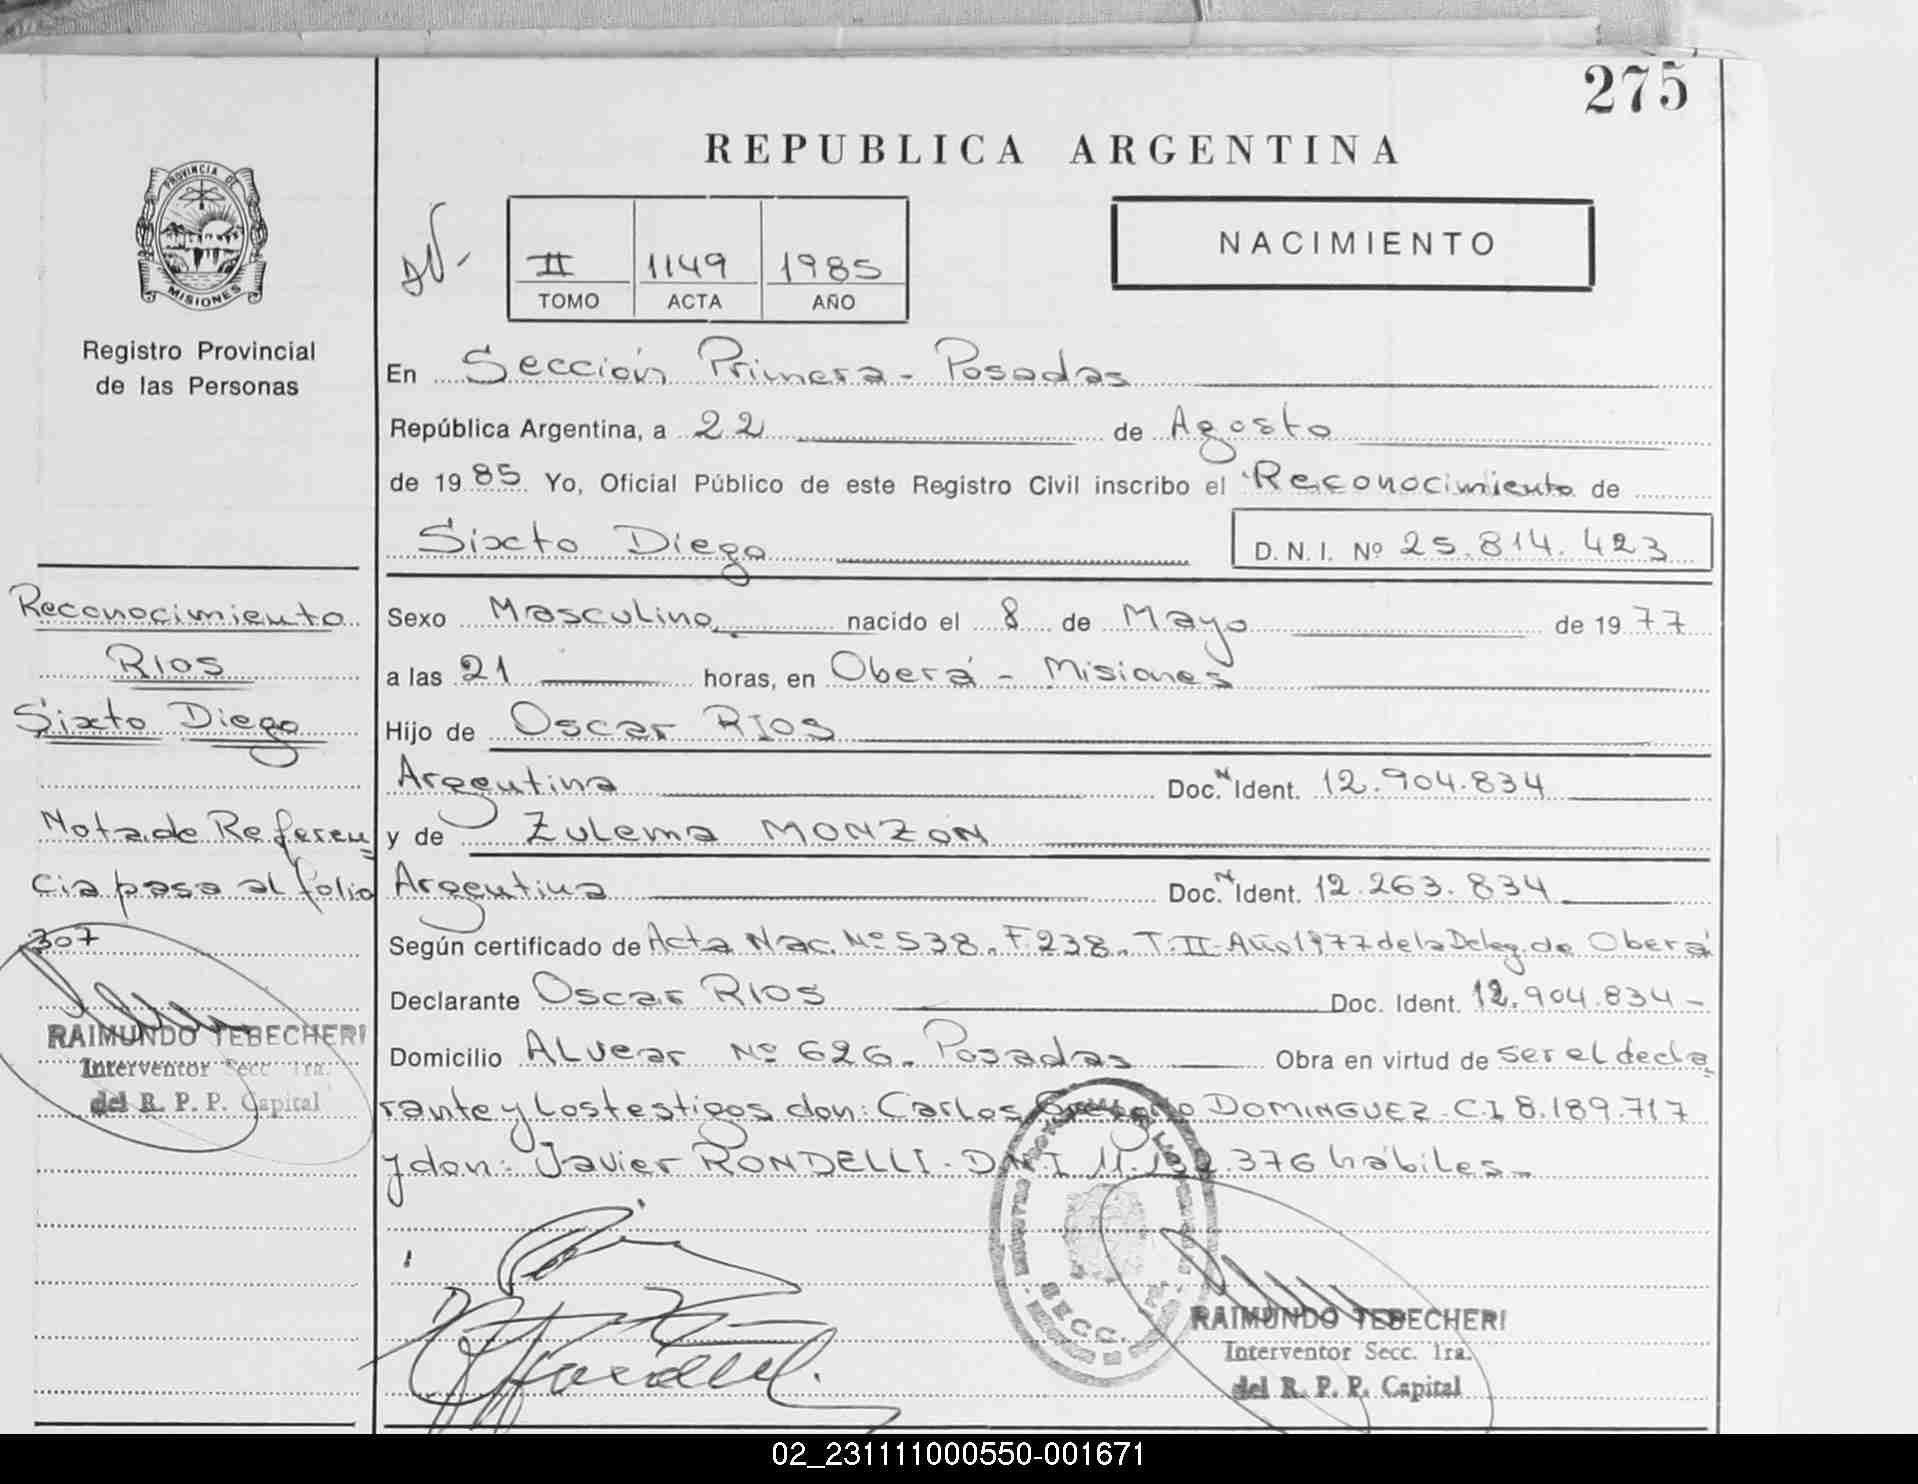 275
REPUBLICA ARGENTINA
PROVINCIA DE
MISIONES
Registro Provincial
de las Personas
II 1149 1985
TOMO ACTA AÑO
NACIMIENTO
En Sección Primera - Posadas
República Argentina, a 22 de Agosto
de 1985 Yo, Oficial Público de este Registro Civil inscribo el Reconocimiento de
Sixto Diego D. N. I. Nº 25.814.423
Sexo Masculino nacido el 8 de Mayo de 1977
a las 21 horas, en Oberá - Misiones
Hijo de Oscar RIOS
Argentina Doc. N Ident. 12.904.834
y de Zulema MONZON
Argentina Doc. N Ident. 12.263.834
Según certificado de Acta Nac. Nº 538. F. 238. T. II- Año 1977 de la Deleg. de Oberá
Declarante Oscar RIOS Doc. Ident. 12.904.834 -
Domicilio Alvear Nº 626. Posadas Obra en virtud de ser el decla
rante y los testigos don: Carlos DOMINGUEZ - C.I 8.189.717
y don: Javier RONDELLI - D.N.I 376 hábiles.-
Reconocimiento
RIOS
Sixto Diego
Nota de Referen
cia pasa al folio
307
RAIMUNDO TEBECHERI
Interventor Secc 1ra.
del R. P. P. Capital
SECC.
RAIMUNDO TEBECHERI
Interventor Secc. 1ra.
del R. P. P. Capital
02_231111000550-001671